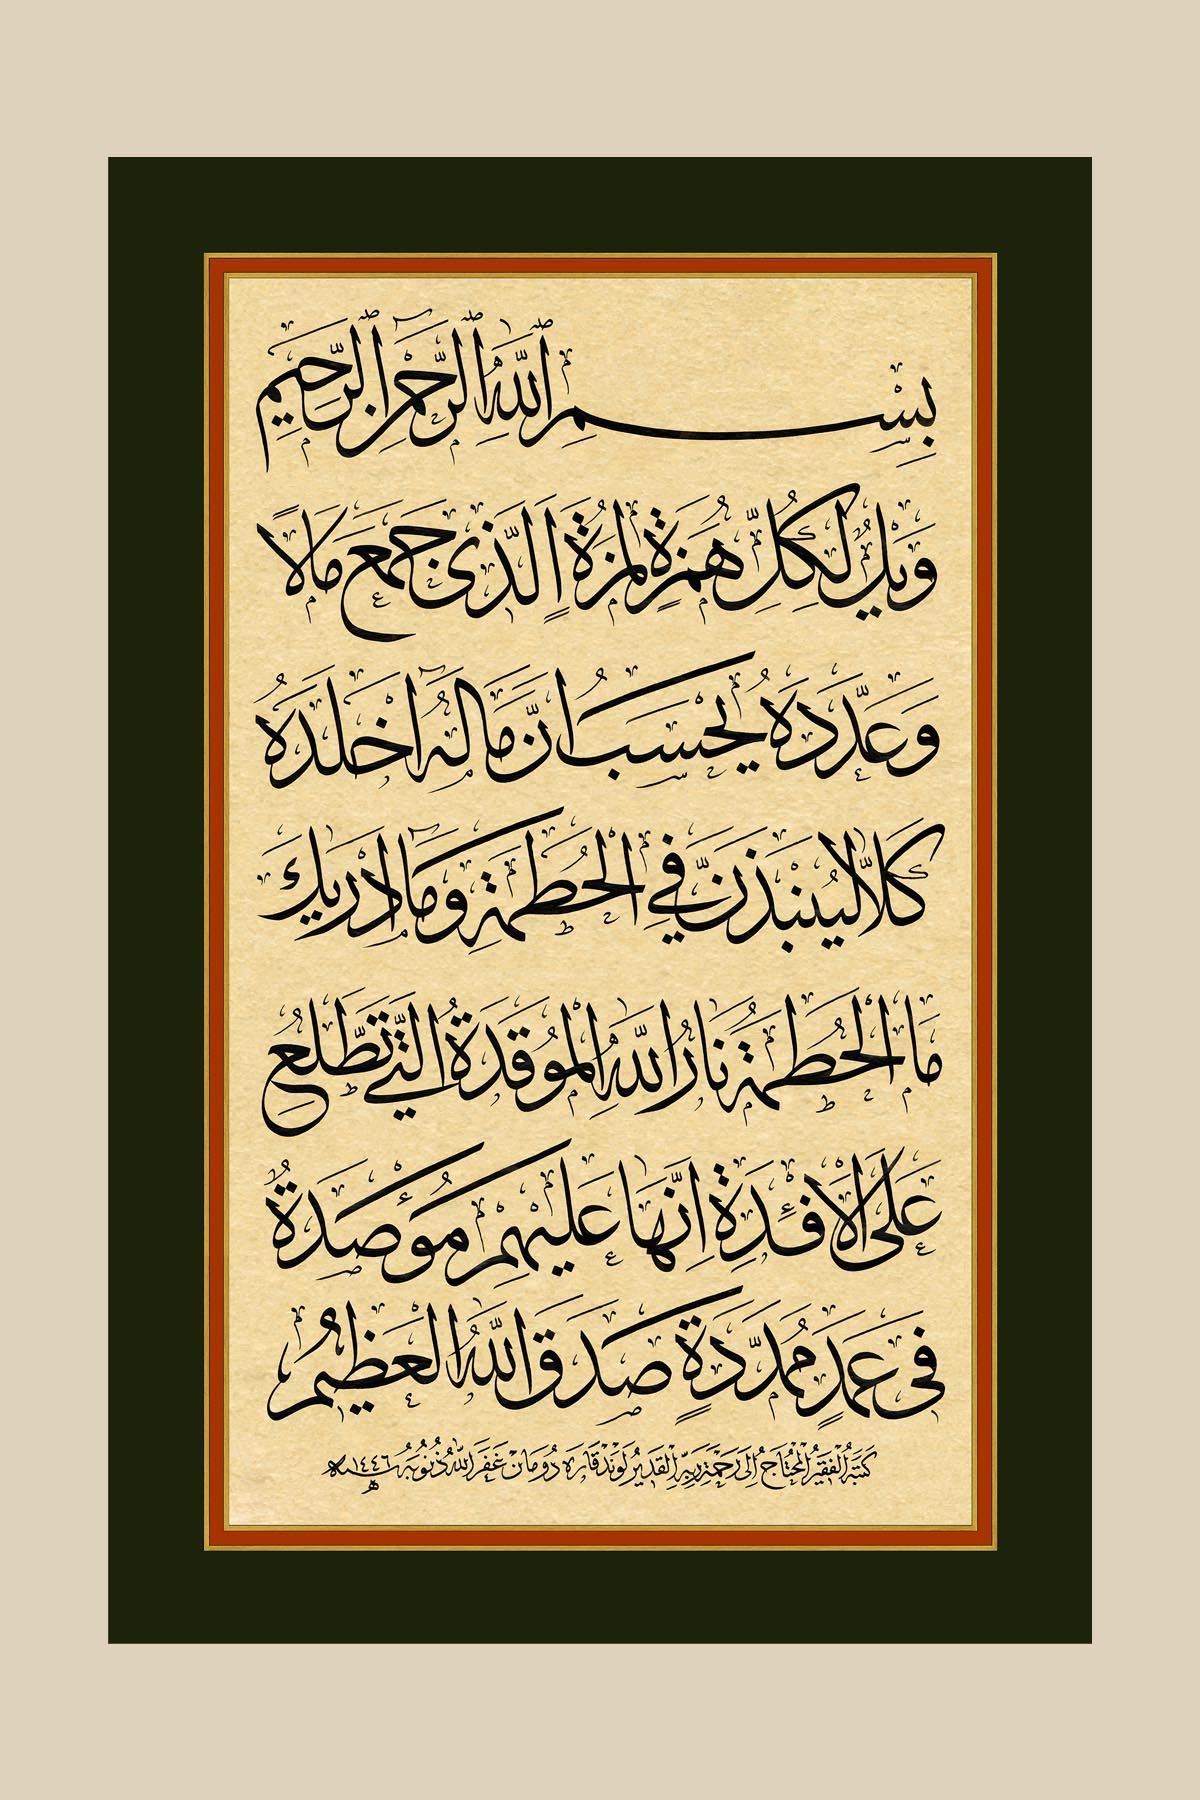 بِسْمِ اللّٰهِ الرَّحْمٰنِ الرَّحِيمِ
وَيْلٌ لِكُلِّ هُمَزَةٍ لُمَزَةٍ اَلَّذِى جَمَعَ مَالًا
وَعَدَّدَهُ يَحْسَبُ اَنَّ مَالَهُ اَخْلَدَهُ
كَلَّا لَيُنْبَذَنَّ فِي الْحُطَمَةِ وَمَا اَدْرٰيكَ
مَا الْحُطَمَةُ نَارُ اللّٰهِ الْمُوقَدَةُ الَّتِي تَطَّلِعُ
عَلَى الْاَفْئِدَةِ اِنَّهَا عَلَيْهِمْ مُؤْصَدَةٌ
فِى عَمَدٍ مُمَدَّدَةٍ صَدَقَ اللّٰهُ الْعَظِيمُ
كَتَبَهُ الْفَقِيرُ الْمُحْتَاجُ اِلَى رَحْمَةِ رَبِّهِ الْقَدِيرِ لَوَنْد قَارَه دُومَانْ غَفَرَ اللّٰهُ ذُنُوبَهُ سنة ١٤٤٦ه